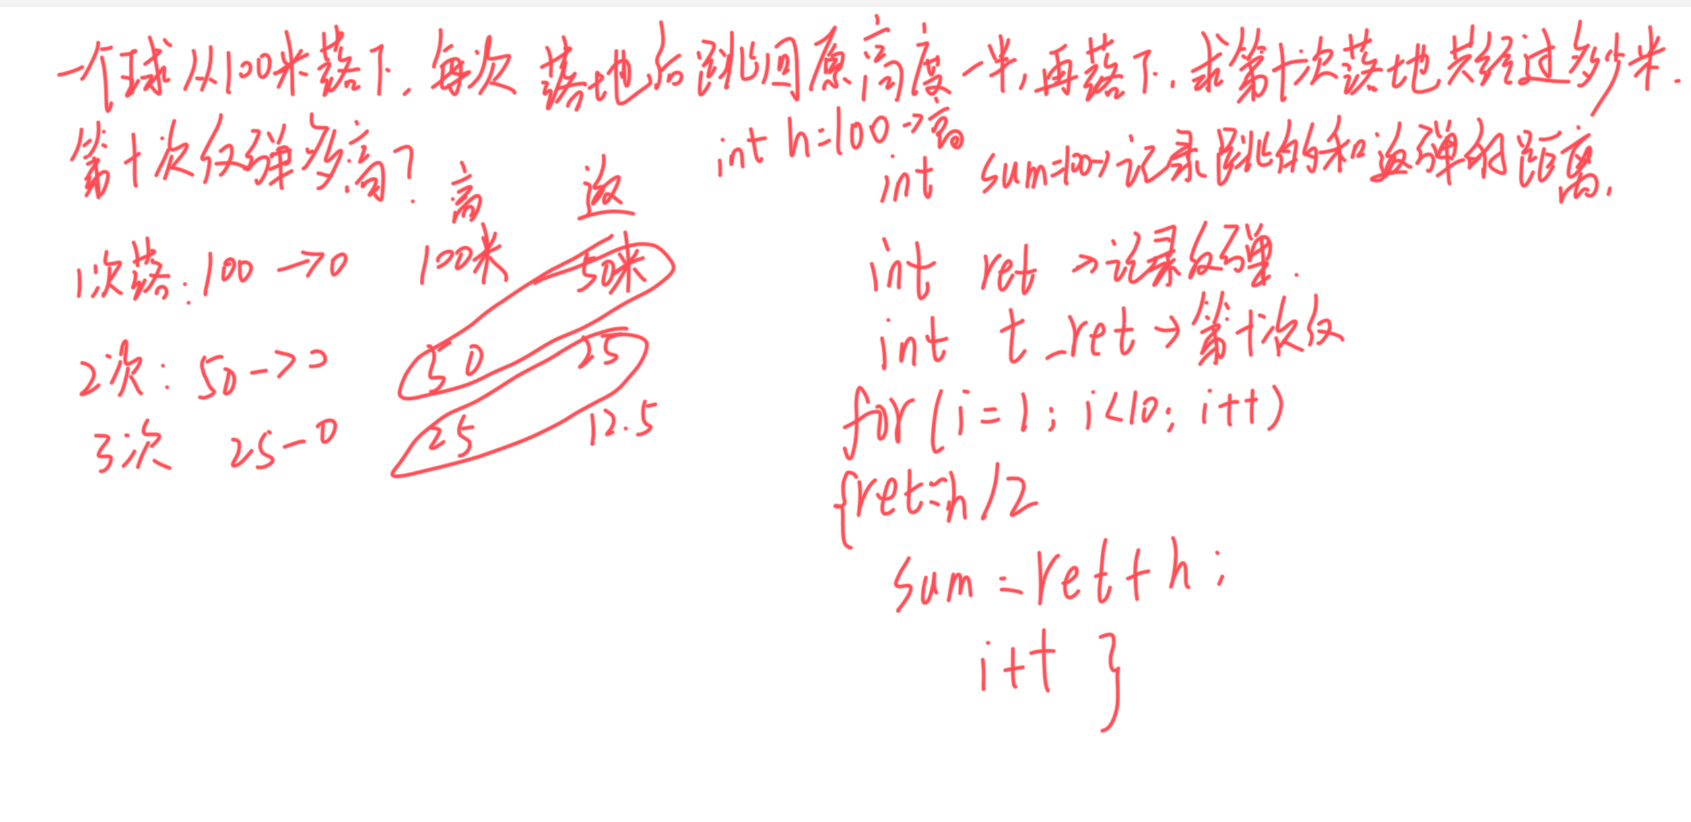 一个球从100米落下，每次落地后跳回原高度一半，再落下，求第十次落地共经过多少米．
第十次反弹多高？
int h=100→高
int sum=100→记录跳的和返弹的距离．
高 返
1次落：100→0 100米 50米
int ret→记录反弹．
2次：50→0 50 25
int t_ret→第十次反
3次 25-0 25 12.5
for(i=1; i<10; i++)
{ret=h/2
sum=ret+h;
i++ }